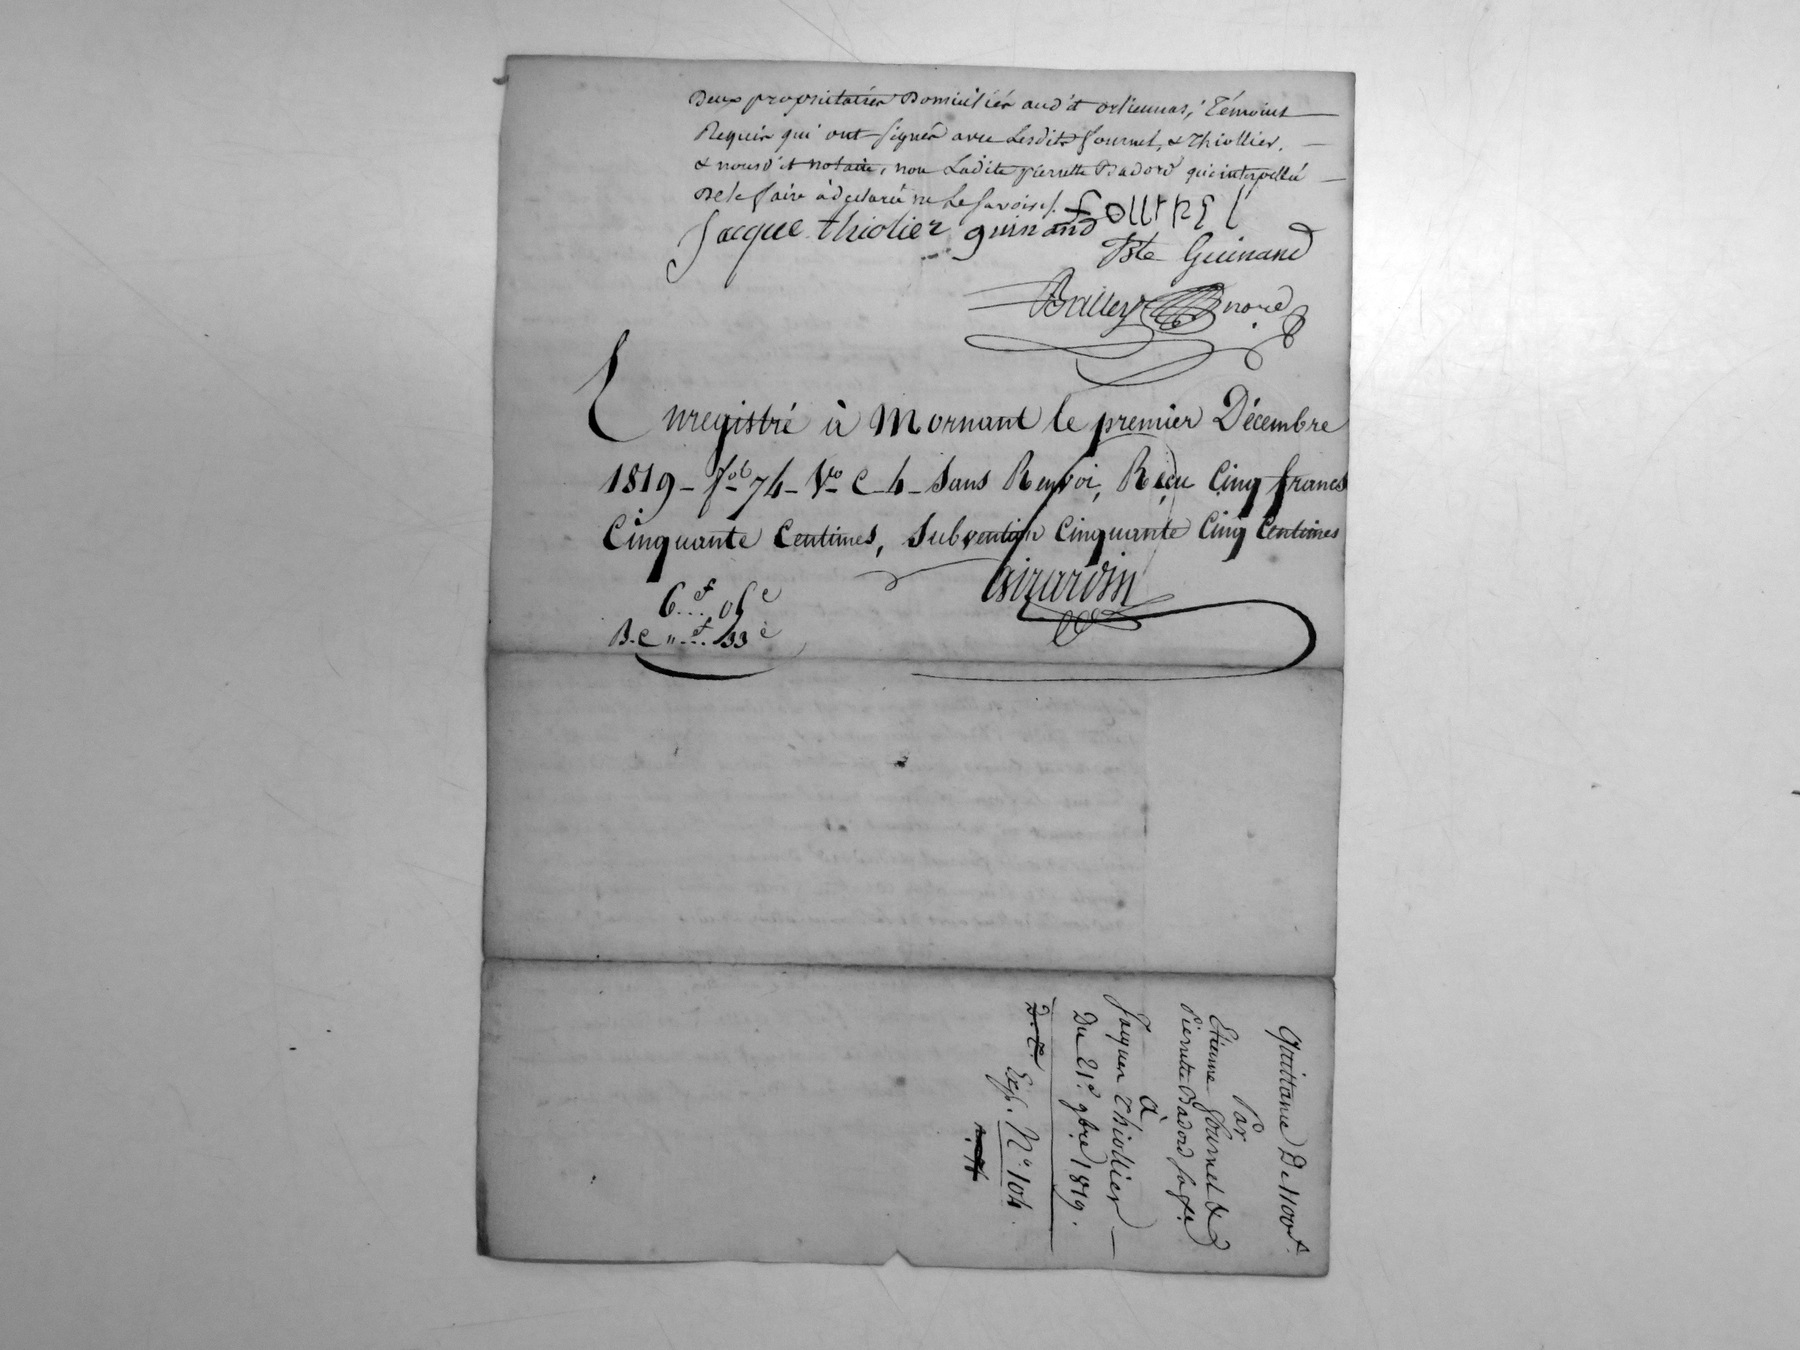 Deux propriétaires Domiciliés aud.it orliennas, Témoins
Requis qui ont signés avec Lesdits fournel, & Thiollier.
& nousd.it notaire, non Ladite pierrette Badord qui interpellée
De le faire à déclaré ne Le savoir /.
fournel
Jacque thiolier guinand
Bte Guinand
Balley nore
Enregistré à Mornant le premier Décembre
1819 - fol 74 - Vo C 4 - Sans Renvoi, Reçu Cinq francs
Cinquante Centimes, Subvention Cinquante Cinq Centimes
Girardin
6 f 05 c
B.C " f 33 c
Quittance De 1100 f.
Par
Etienne fournel &
Pierrette Badord sa fe
à
Jacques Thiollier
Du 21e 9bre 1819.
Exp. No 104.